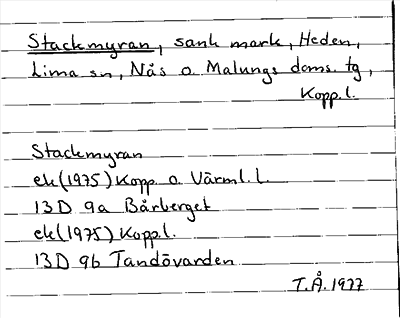 Stackmyran, sank mark, Heden,
Lima sn, Nås o. Malungs doms. tg,
Kopp.l.
Stackmyran
ek(1975) Kopp. o. Värml. l.
13D 9a Bårberget
ek(1975) Kopp.l.
13D 9b Tandövarden
T.Å. 1977